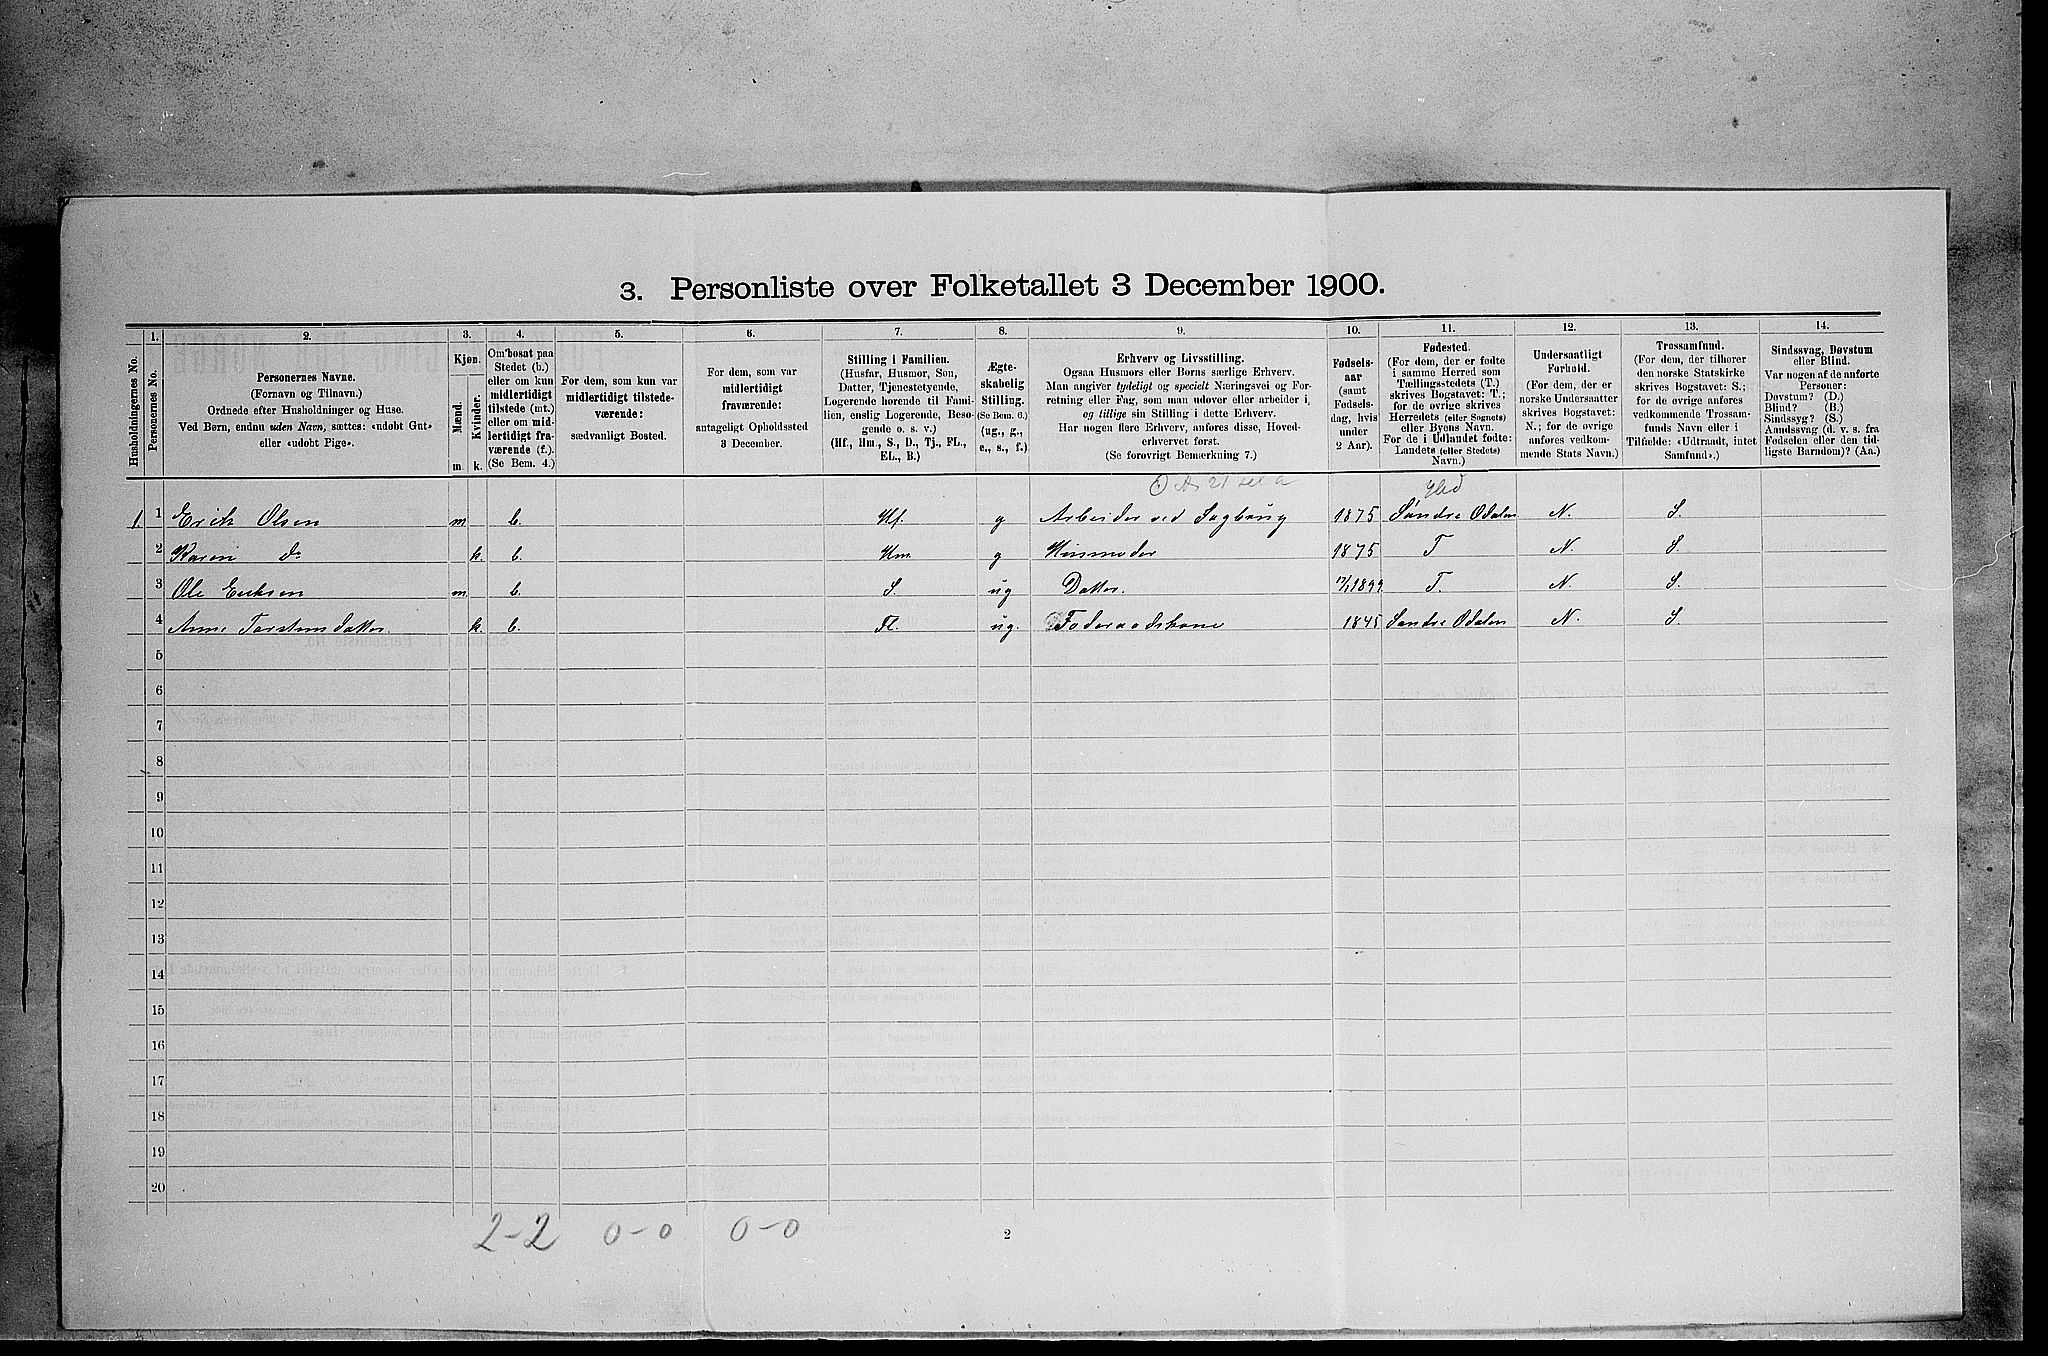 3. Personliste over Folketallet 3 December 1900.
1. 2. 3. 4. 5. 6. 7. 8. 9. 10. 11. 12. 13. 14.
Husholdningernes No.
Personernes No.
Personernes Navne.
(Fornavn og Tilnavn.)
Ordnede efter Husholdninger og Huse.
Ved Børn, endnu uden Navn, sættes: «udøbt Gut»
eller «udøbt Pige».
Kjøn.
Mænd.
Kvinder.
m. k.
Om bosat paa
Stedet (b.)
eller om kun
midlertidigt
tilstede (mt.)
eller om mid-
lertidigt fra-
værende (f.).
(Se Bem. 4.)
For dem, som kun var
midlertidigt tilstede-
værende:
sædvanligt Bosted.
For dem, som var
midlertidigt
fraværende:
antageligt Opholdssted
3 December.
Stilling i Familien.
(Husfar, Husmor, Søn,
Datter, Tjenestetyende,
Logerende hørende til Fami-
lien, enslig Logerende, Besø-
gende o. s. v.)
(Hf., Hm., S., D., Tj., FL.,
EL., B.)
Ægte-
skabelig
Stilling.
(Se Bem. 6.)
(ug., g.,
e., s., f.)
Erhverv og Livsstilling.
Ogsaa Husmors eller Børns særlige Erhverv.
Man angiver tydeligt og specielt Næringsvei og For-
retning eller Fag, som man udøver eller arbeider i,
og tillige sin Stilling i dette Erhverv.
Har nogen flere Erhverv, anføres disse, Hoved-
erhvervet først.
(Se forøvrigt Bemærkning 7.)
Fødsels-
aar
(samt
Fødsels-
dag, hvis
under
2 Aar).
Fødested.
(For dem, der er fødte
i samme Herred som
Tællingsstedets (T.)
skrives Bogstavet: T.;
for de øvrige skrives
Herredets (eller Sognets)
eller Byens Navn.
For de i Udlandet fødte:
Landets (eller Stedets)
Navn.)
Undersaatligt
Forhold.
(For dem, der er
norske Undersaatter
skrives Bogstavet:
N.; for de øvrige
anføres vedkom-
mende Stats Navn.)
Trossamfund.
(For dem, der tilhører
den norske Statskirke
skrives Bogstavet: S.;
for de øvrige anføres
vedkommende Trossam-
funds Navn eller i
Tilfælde: «Udtraadt, intet
Samfund».)
Sindssvag, Døvstum
eller Blind.
Var nogen af de anførte
Personer:
Døvstum? (D.)
Blind? (B.)
Sindssyg? (S.)
Aandssvag (d. v. s. fra
Fødselen eller den tid-
ligste Barndom)? (Aa.)
1 1 Erik Olsen m b. Hf. g Arbeider ved Sagbrug 1875 Søndre Odalen N. S.
2 Karen do k. b. Hm g Husmoder 1875 T N. S.
3 Ole Eriksen m b. S. ug Datter. 1899 T. N. S.
4 Anne Torstensdatter. k. b. Fl. ug. Føderaadskone 1845 Søndre Odalen N. S.
5
6
7
8
9
10
11
12
13
14
15
16
17
18
19
20
2-2 0-0 0-0
2